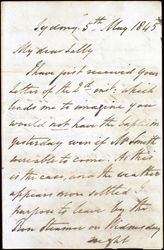 Sydney 5th May 1845
My dear Sally
I have just received your
letter of the 2d inst: which
leads me to imagine you
would not have the
yesterday even if Mr Smith
were able to come. As this
is the case, and the weather
appears more settled. I
purpose to leave by the
Steamer on Wednesday
night